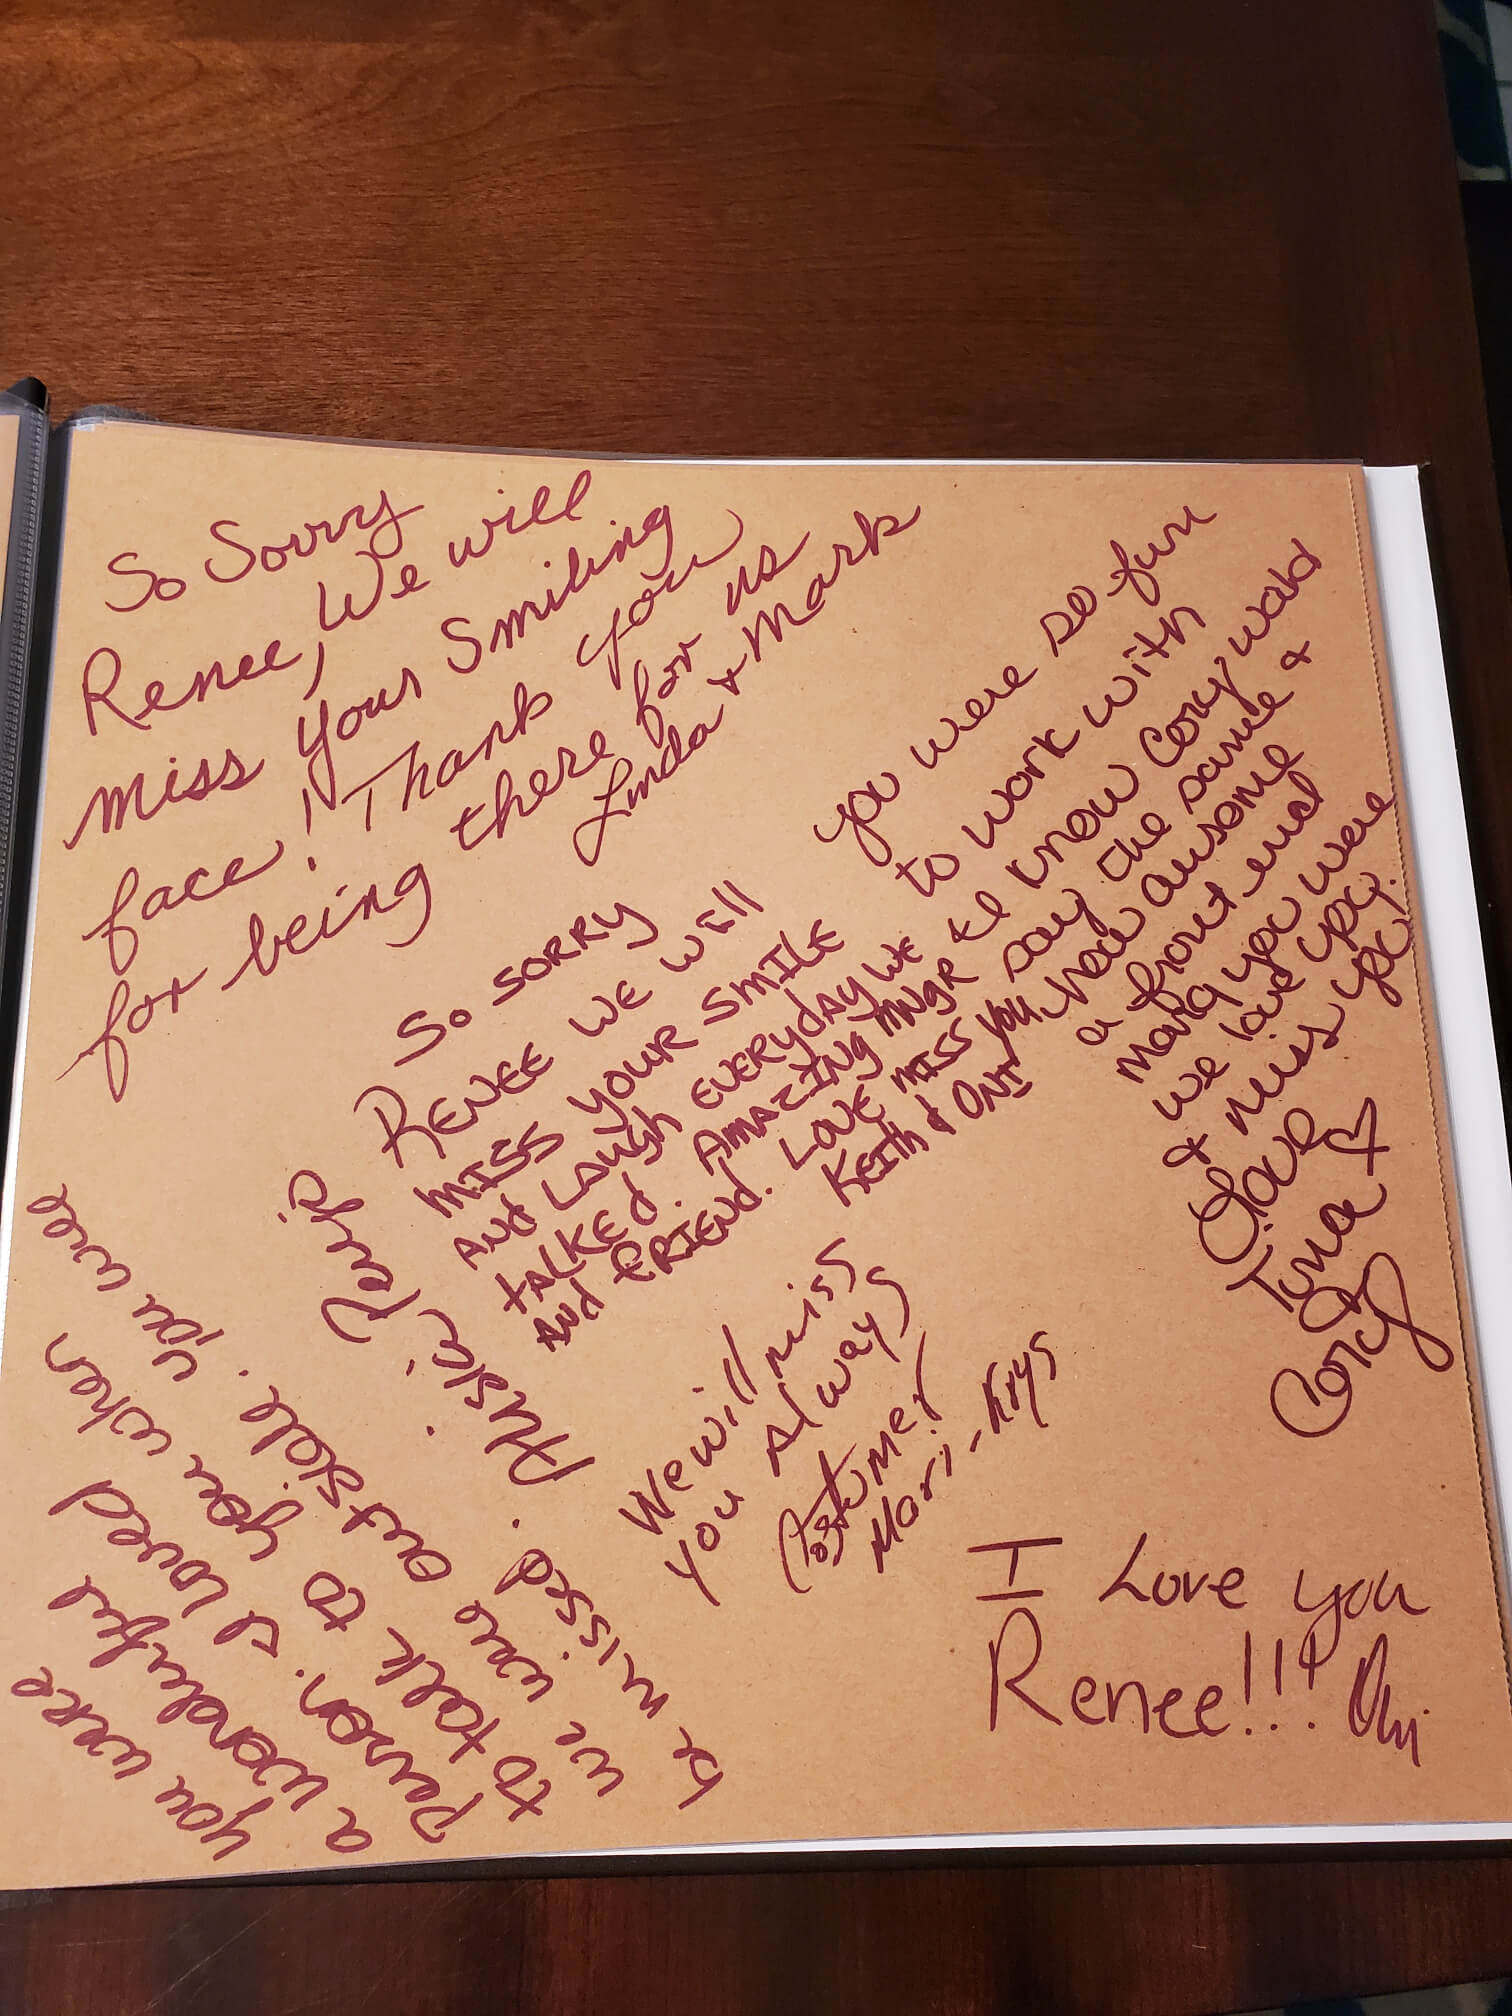 So Sorry
Renee, We will
miss your Smiling
face! Thank you
for being there for us
Linda & Mark
So SORRY
RENEE WE WILL
MISS YOUR SMILE
ANd LAUGH EVERYdAY WE
tALKEd. AMAZING MNGR
ANd FRIENd. LOVE MISS YOU
KEITH & 
you were so fun
to work with
 know Cory 
say the same &
you had 
a 
 you were
we love you.
& miss you
Love
Tina
Cory
you were
a wonderful
Person. I loved
to talk to you when
we was outside. you will
be missed. 
We will miss
you Always
Costumer
Mari-Krys
I Love you
Renee!!!